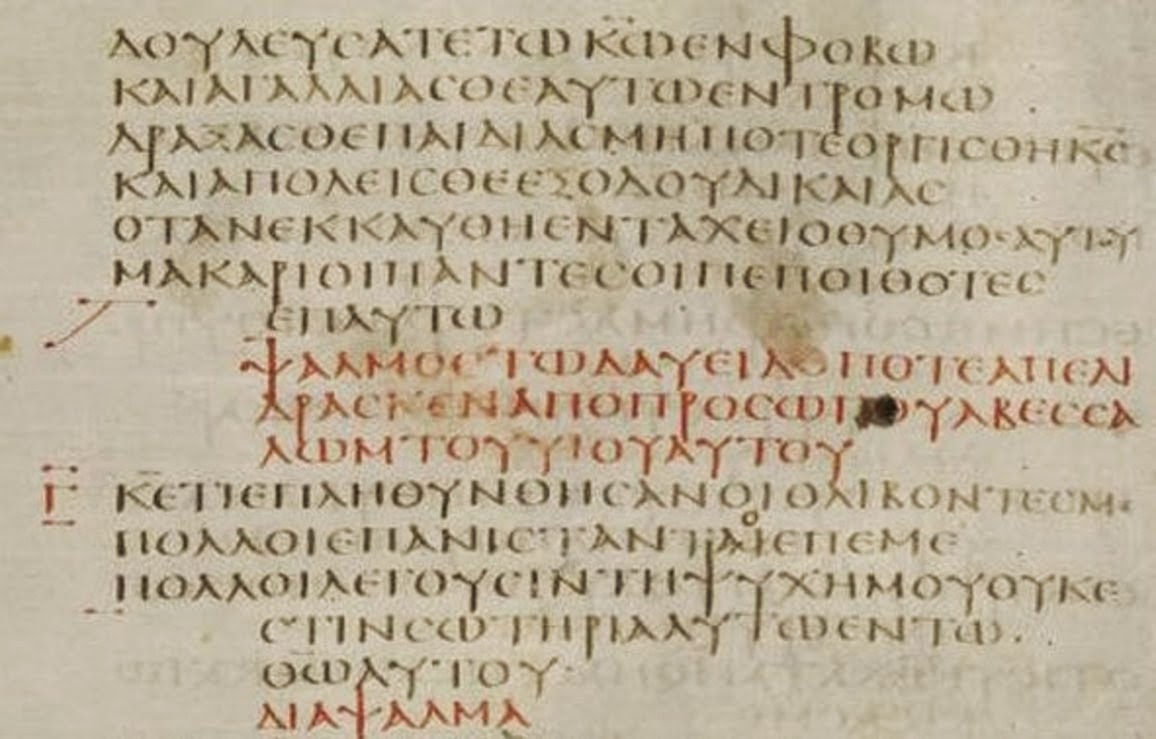 ΔΟΥΛΕΥϹΑΤΕΤΩΚ̅Ω̅ΕΝΦΟΒΩ
ΚΑΙΑΓΑΛΛΙΑϹΘΕΑΥΤΩΕΝΤΡΟΜΩ
ΔΡΑΞΑϹΘΕΠΑΙΔΙΑϹΜΗΠΟΤΕΟΡΓΙϹΘΗΚ̅Ϲ̅
ΚΑΙΑΠΟΛΕΙϹΘΕΕΞΟΔΟΥΔΙΚΑΙΑϹ
ΟΤΑΝΕΚΚΑΥΘΗΕΝΤΑΧΕΙΟΘΥΜΟϹΑΥΤΟΥ
ΜΑΚΑΡΙΟΙΠΑΝΤΕϹΟΙΠΕΠΟΙΘΟΤΕϹ
ΕΠΑΥΤΩ
ΨΑΛΜΟϹΤΩΔΑΥΕΙΔΟΠΟΤΕΑΠΕΔΙ
ΔΡΑϹΚΕΝΑΠΟΠΡΟϹΩΠΟΥΑΒΕϹϹΑ
ΛΩΜΤΟΥΥΙΟΥΑΥΤΟΥ
Γ Κ̅Ε̅ΤΙΕΠΛΗΘΥΝΘΗϹΑΝΟΙΘΛΙΒΟΝΤΕϹΜΕ
ΠΟΛΛΟΙΕΠΑΝΙϹΤΑΝΤΑΙΕΠΕΜΕ
ΠΟΛΛΟΙΛΕΓΟΥϹΙΝΤΗΨΥΧΗΜΟΥΟΥΚΕ
ϹΤΙΝϹΩΤΗΡΙΑΑΥΤΩΕΝΤΩ
Θ̅Ω̅ΑΥΤΟΥ
ΔΙΑΨΑΛΜΑ